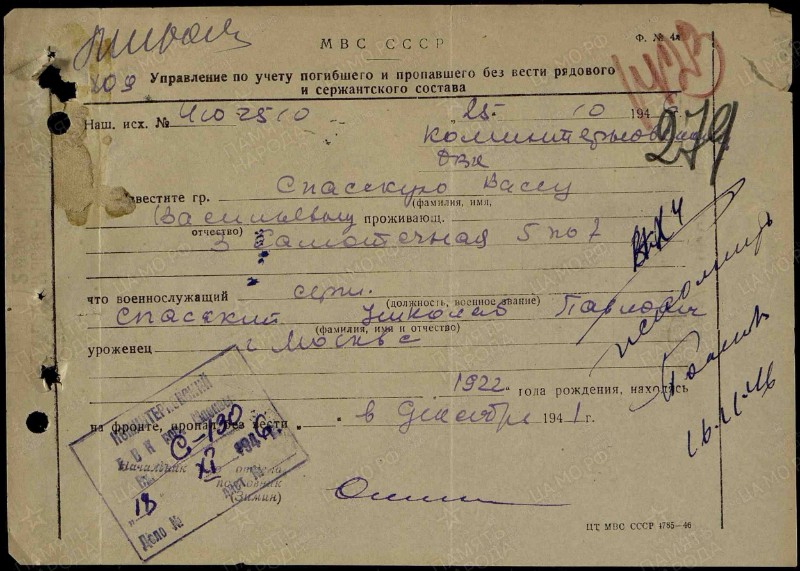 МВС СССР
Ф. № 4а
1423
209
Управление по учету погибшего и пропавшего без вести рядового
и сержантского состава
Наш. исх. № 4107510
„25“ 10 194
279
Известите гр. Спасскую Вассу
(фамилия, имя,
Васильевну проживающ.
отчество)
3 Самотечная 5 кв 7
что военнослужащий серж.
(должность, военное звание)
Спасский Николай Павлович
(фамилия, имя и отчество)
уроженец г. Москва
1922 года рождения, находясь
на фронте, пропал без вести в декабре 1941 г.
16.11.46
С-130
XI
Начальник отдела
подполковник
(Зимин)
„18
Лист №
Дело №
ЦТ МВС СССР 4785—46